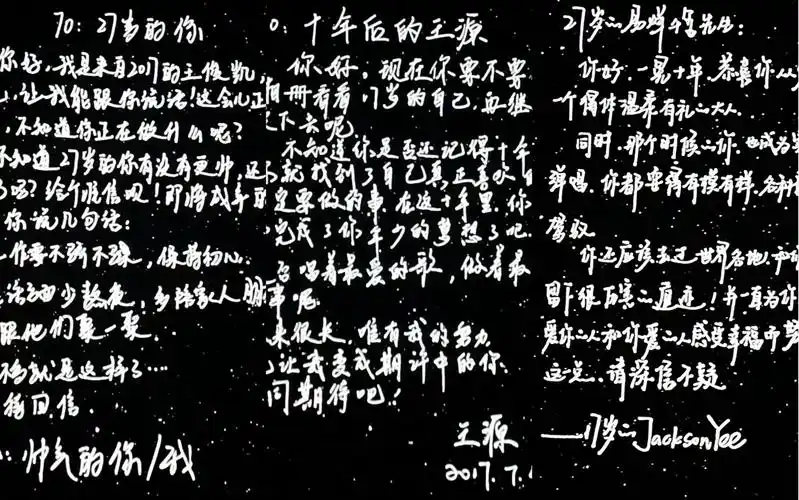 TO: 27岁的你
你好，我是来自2017的王俊凯，
让我能跟你说话！这会儿正
，不知道你正在做什么呢？
不知道27岁的你有没有更帅，还
了吧？给个准信呗！即将成年
你说几句话：
工作要不骄不躁，保持初心。
生活细少熬夜，多给家人
跟他们聚一聚…
不过就是这样了……
等回信.
：帅气的你/我
O: 十年后的王源
你好。现在你要不要
相册看看17岁的自己，再继
下去呢
不知道你是否还记得十年
就找到了自己真正喜欢
定要做的事，在这十年里，你
完成了你年少的梦想了吧
否唱着最爱的歌，做着最
事呢
未来很长，唯有我的努力
让我变成期许中的你
同期待吧！
王源
2017.7.1
27岁的易烊千玺先生：
你好，一晃十年，恭喜你从
一个得体温柔有礼的大人
同时，那个时候的你，也成为
弹唱，你都要得有模有样，各种
驾驭
你还应该去过世界各地，和
留下很厉害的痕迹！并一直为你
爱你的人和你爱的人感受幸福中努
这一点，请深信不疑
——17岁的Jackson Yee